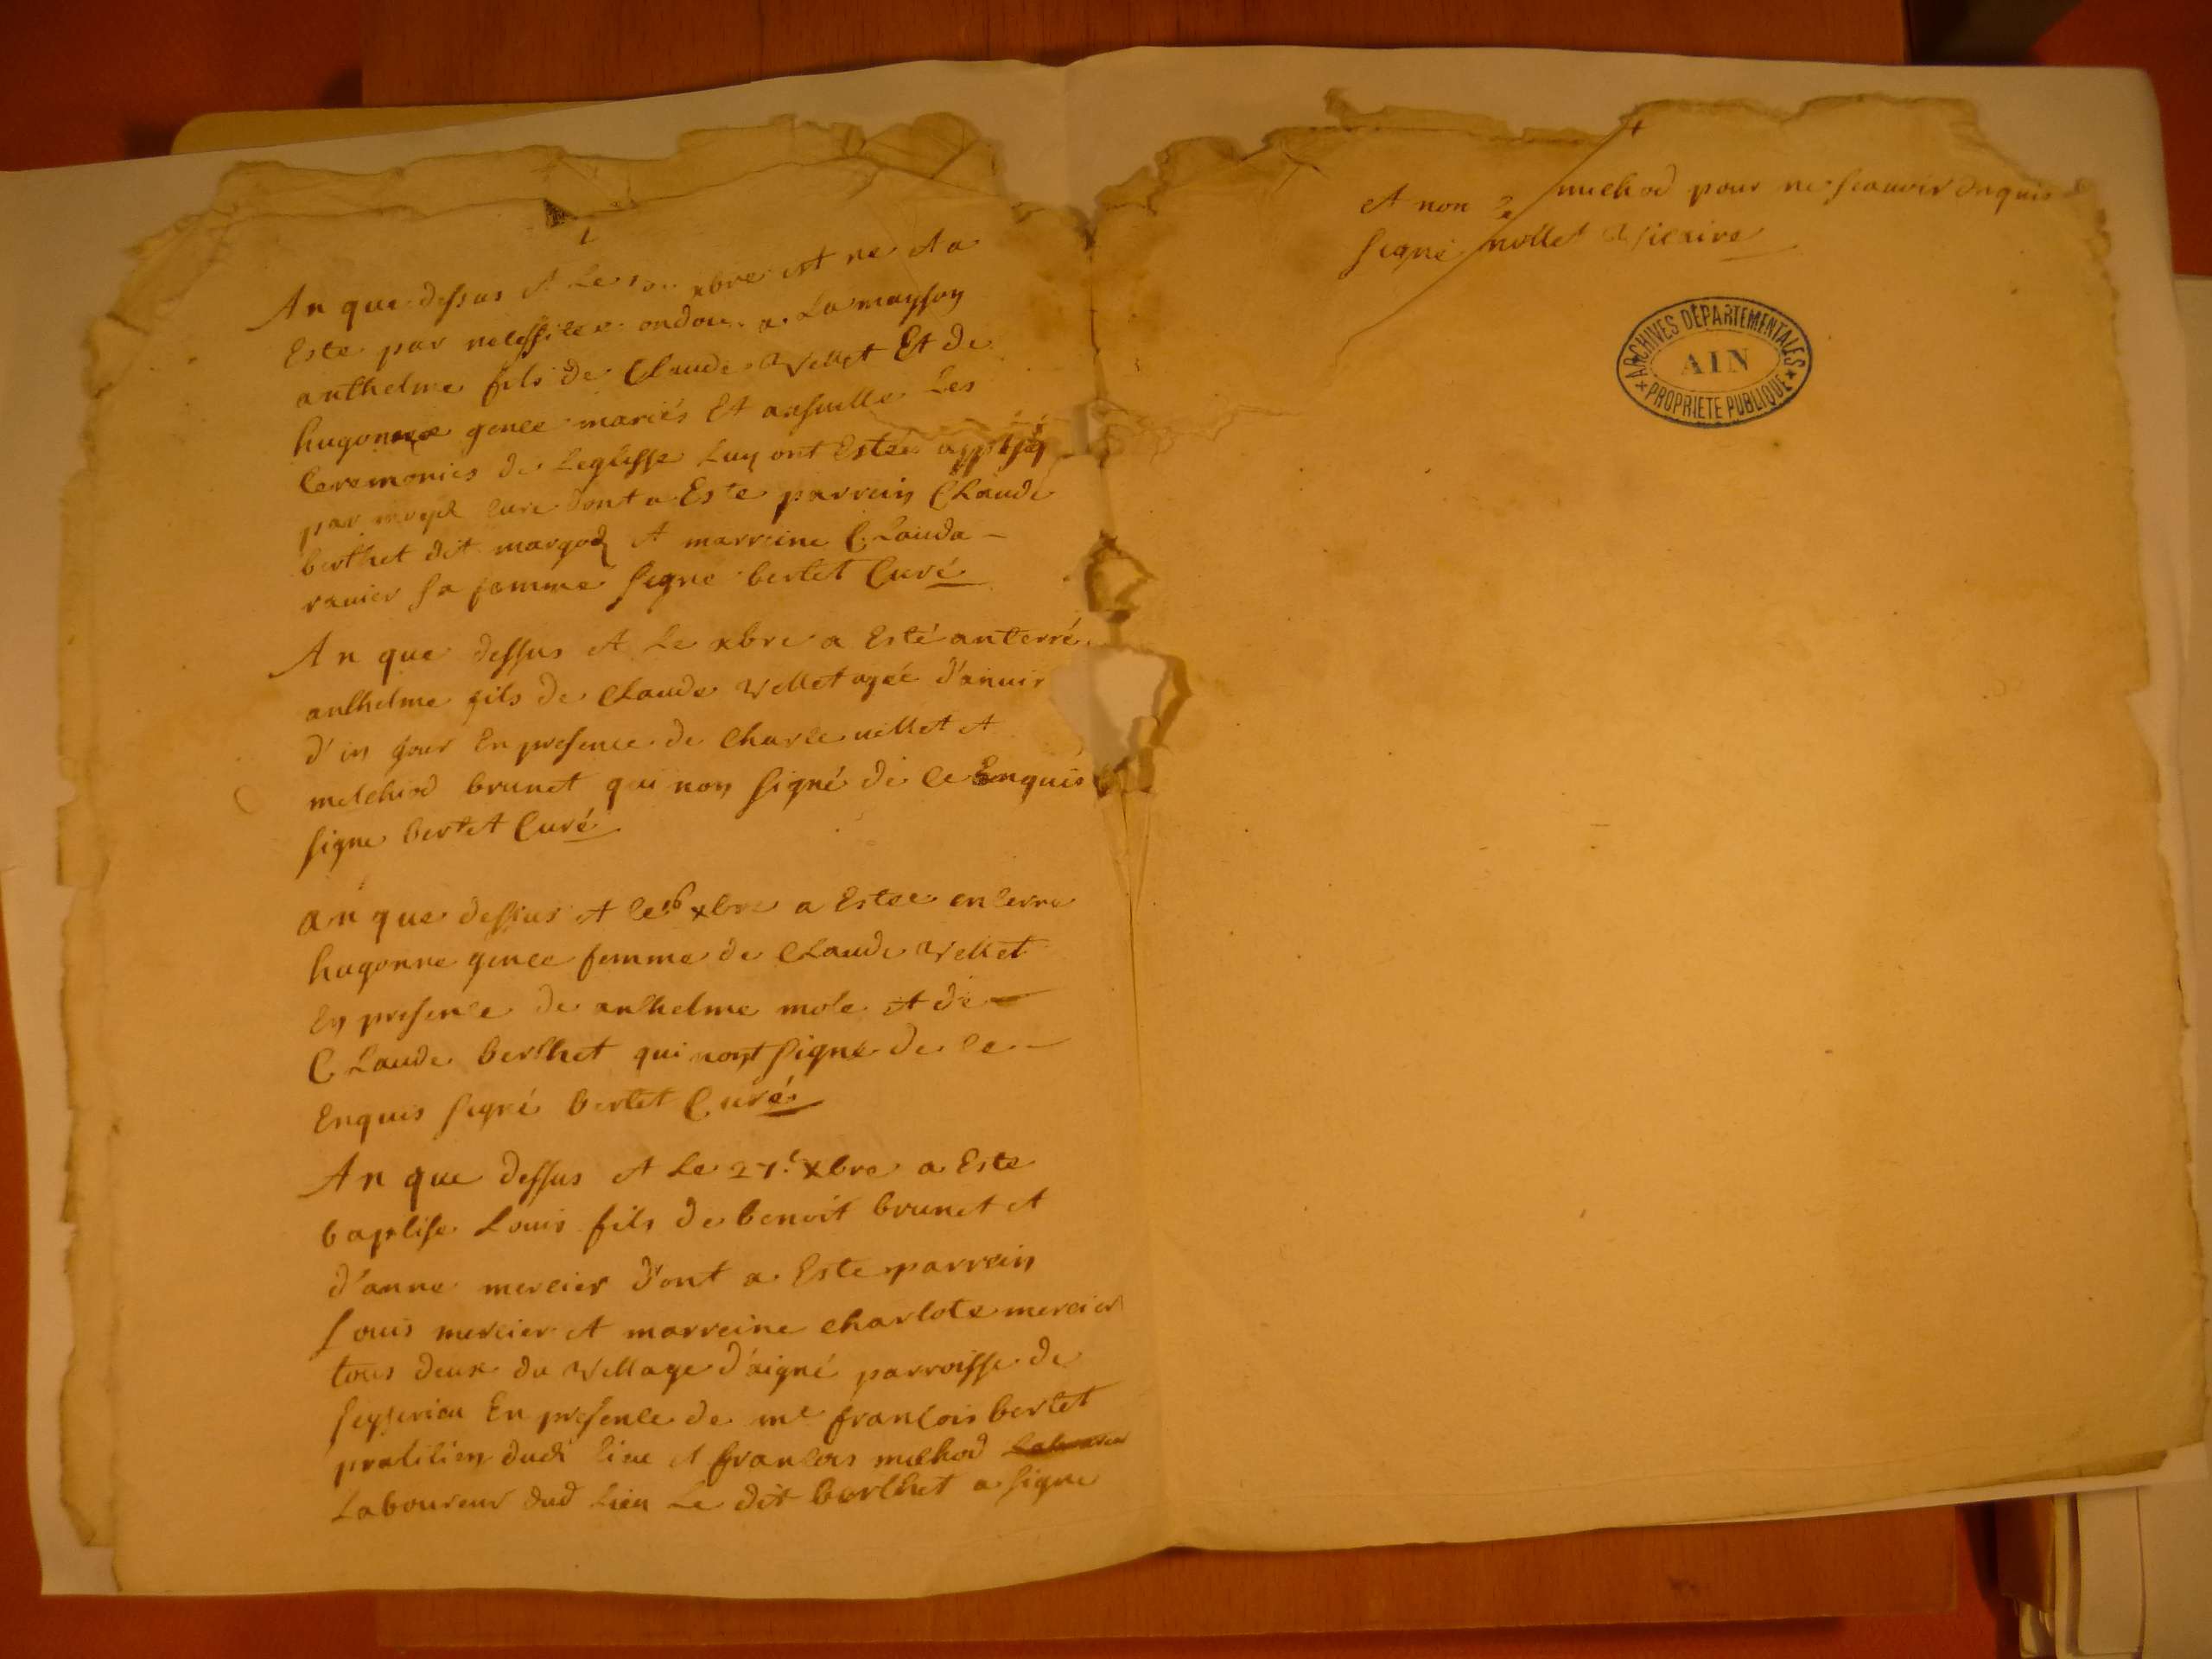 An que dessus et le xbre est ne et a
Este par necessite ondoié a la maysson
anthelme fils de Claude Vellet Et de
hugonne gence mariés Et ansuille les
Ceremonies de Leglisse Luy ont Estée
par curé dont a Este parrain Claude
berthet dit margod et marreine Clauda
ravier sa femme signé bertet Curé
An que dessus et le xbre a Esté anterré
anthelme fils de Claude Vellet agéé d'anvir
d'in jour En presence de Charle vellet et
melchiod brunet qui non signé de ce Enquis
signe bertet Curé
an que dessus et le 16 xbre a Estee enterre
hugonne gence femme de Claude Vellet
En presence de anthelme mole et de
Claude berthet qui nont signé de ce
Enquis signé bertet Curé
An que dessus et le 27e xbre a Este
baptise Louis fils de benoit brunet et
d'anne mercier dont a Este parrain
Louis mercier et marreine charlote mercier
tous deux du Village d'aigné parroisse de
seysserieu En presence de me françois bertet
pratitien dudi lieu et francois michod
Laboureur dud Lieu Le dit berthet a signe
et non le michod pour ne scauoir Enquis
signé mollet
ARCHIVES DÉPARTEMENTALES
AIN
PROPRIETE PUBLIQUE